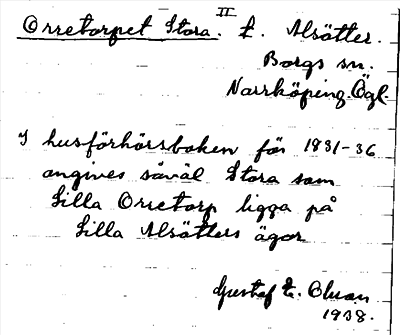 II
Orretorpet Stora. t. Alsätter.
Borgs sn.
Norrköping. Ögl.
I husförhörsboken för 1831-36
angives såväl Stora som
Lilla Orretorp ligga på
Lilla Alsätters ägor
Gustaf E.
1938.